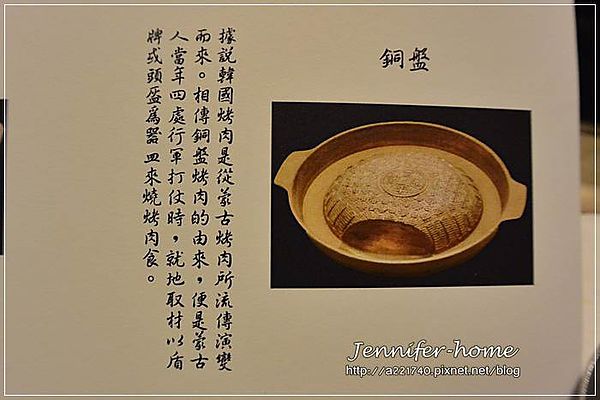 銅盤
據說韓國烤肉是從蒙古烤肉所流傳演變
而來。相傳銅盤烤肉的由來，便是蒙古
人當年四處行軍打仗時，就地取材以盾
牌或頭盔為器皿來燒烤肉食。
Jennifer-home
http://a221740.pixnet.net/blog